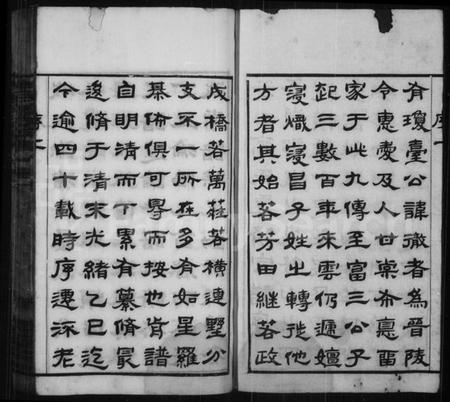 有瓊臺公諱徹者為晉陵
令惠愛及人世業布憙留
家于此九傳至富三公子
起三數百年來雲仍遞嬗
寖熾寖昌子姓之轉徙他
方者其始若芳田繼若政
成橋若萬莊若橫連墅分
支不一所在多有如星羅
棊佈俱可尋而按也肯譜
自明清而下累有纂脩最
後脩于清末光緒乙巳迄
今逾四十載時序遷流老
序一
序二